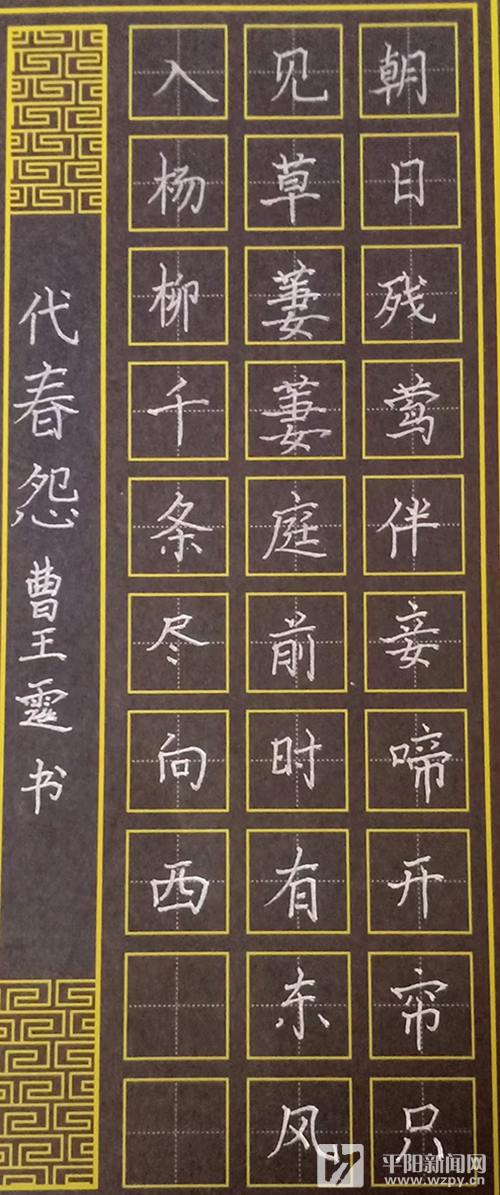 朝日残莺伴妾啼开帘只
见草萋萋庭前时有东风
入杨柳千条尽向西
代春怨 曹王霆书
平阳新闻网
www.wzpy.cn